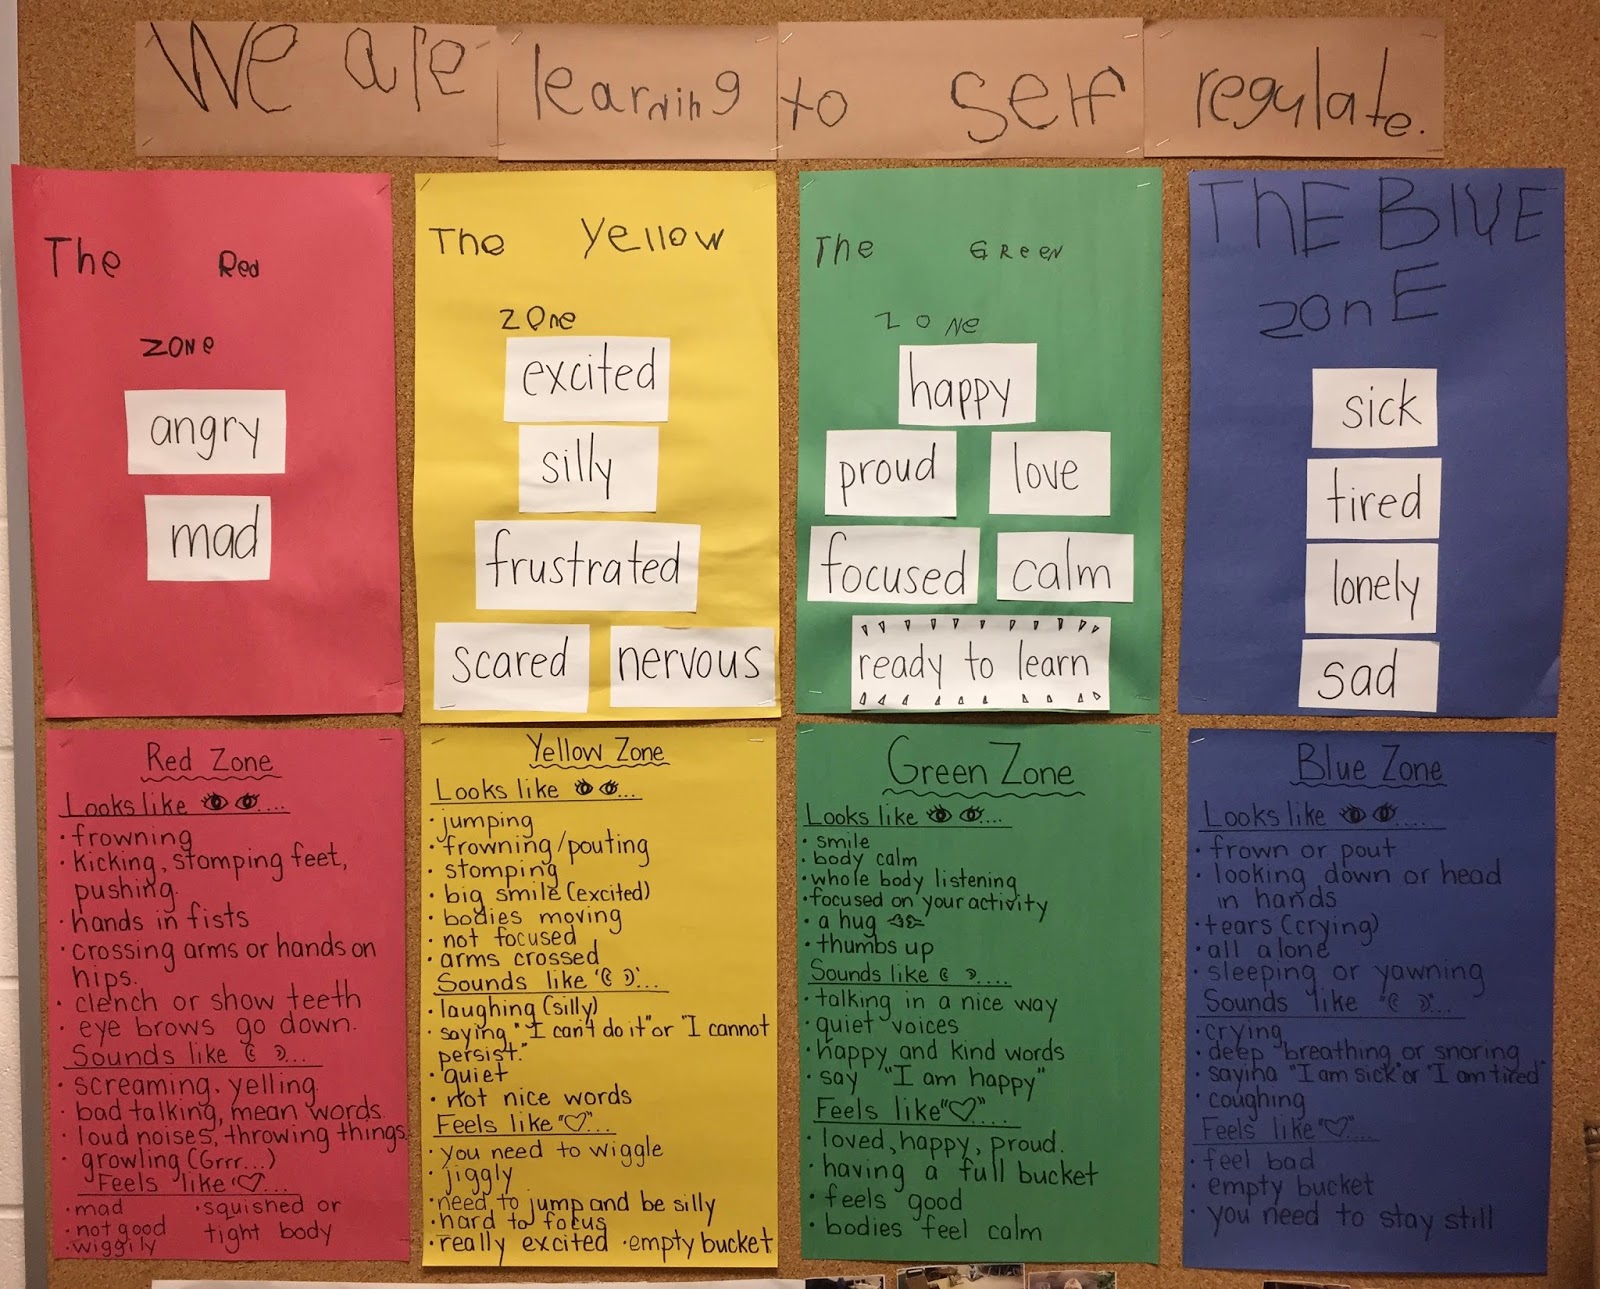 We are learning to self regulate.
The Red
zone
angry
mad
The Yellow
zone
excited
silly
frustrated
scared nervous
The Green
zone
happy
proud love
focused calm
ready to learn
ThE BlUE
zonE
sick
tired
lonely
sad
Red Zone
Looks like ....
· frowning
· kicking, stomping feet,
pushing.
· hands in fists
· crossing arms or hands on
hips.
· clench or show teeth
· eye brows go down.
Sounds like ...
· screaming, yelling
· bad talking, mean words
· loud noises, throwing things
· growling (Grrr...)
Feels like "♡"...
· mad · squished or
· not good tight body
· wiggily
Yellow Zone
Looks like ...
· jumping
· frowning/pouting
· stomping
· big smile (excited)
· bodies moving
· not focused
· arms crossed
Sounds like ...
· laughing (silly)
· saying "I can't do it" or "I cannot
persist."
· quiet
· not nice words
Feels like "♡"...
· you need to wiggle
· jiggly
· need to jump and be silly
· hard to focus
· really excited · empty bucket
Green Zone
Looks like ....
· smile
· body calm
· whole body listening
· focused on your activity
· a hug
· thumbs up
Sounds like ....
· talking in a nice way
· quiet voices
· happy and kind words
· say "I am happy"
Feels like "♡"....
· loved, happy, proud.
· having a full bucket
· feels good
· bodies feel calm
Blue Zone
Looks like .....
· frown or pout
· looking down or head
in hands
· tears (crying)
· all alone
· sleeping or yawning
Sounds like ....
· crying
· deep breathing or snoring
· saying "I am sick" or "I am tired"
· coughing
Feels like "♡"....
· feel bad
· empty bucket
· you need to stay still